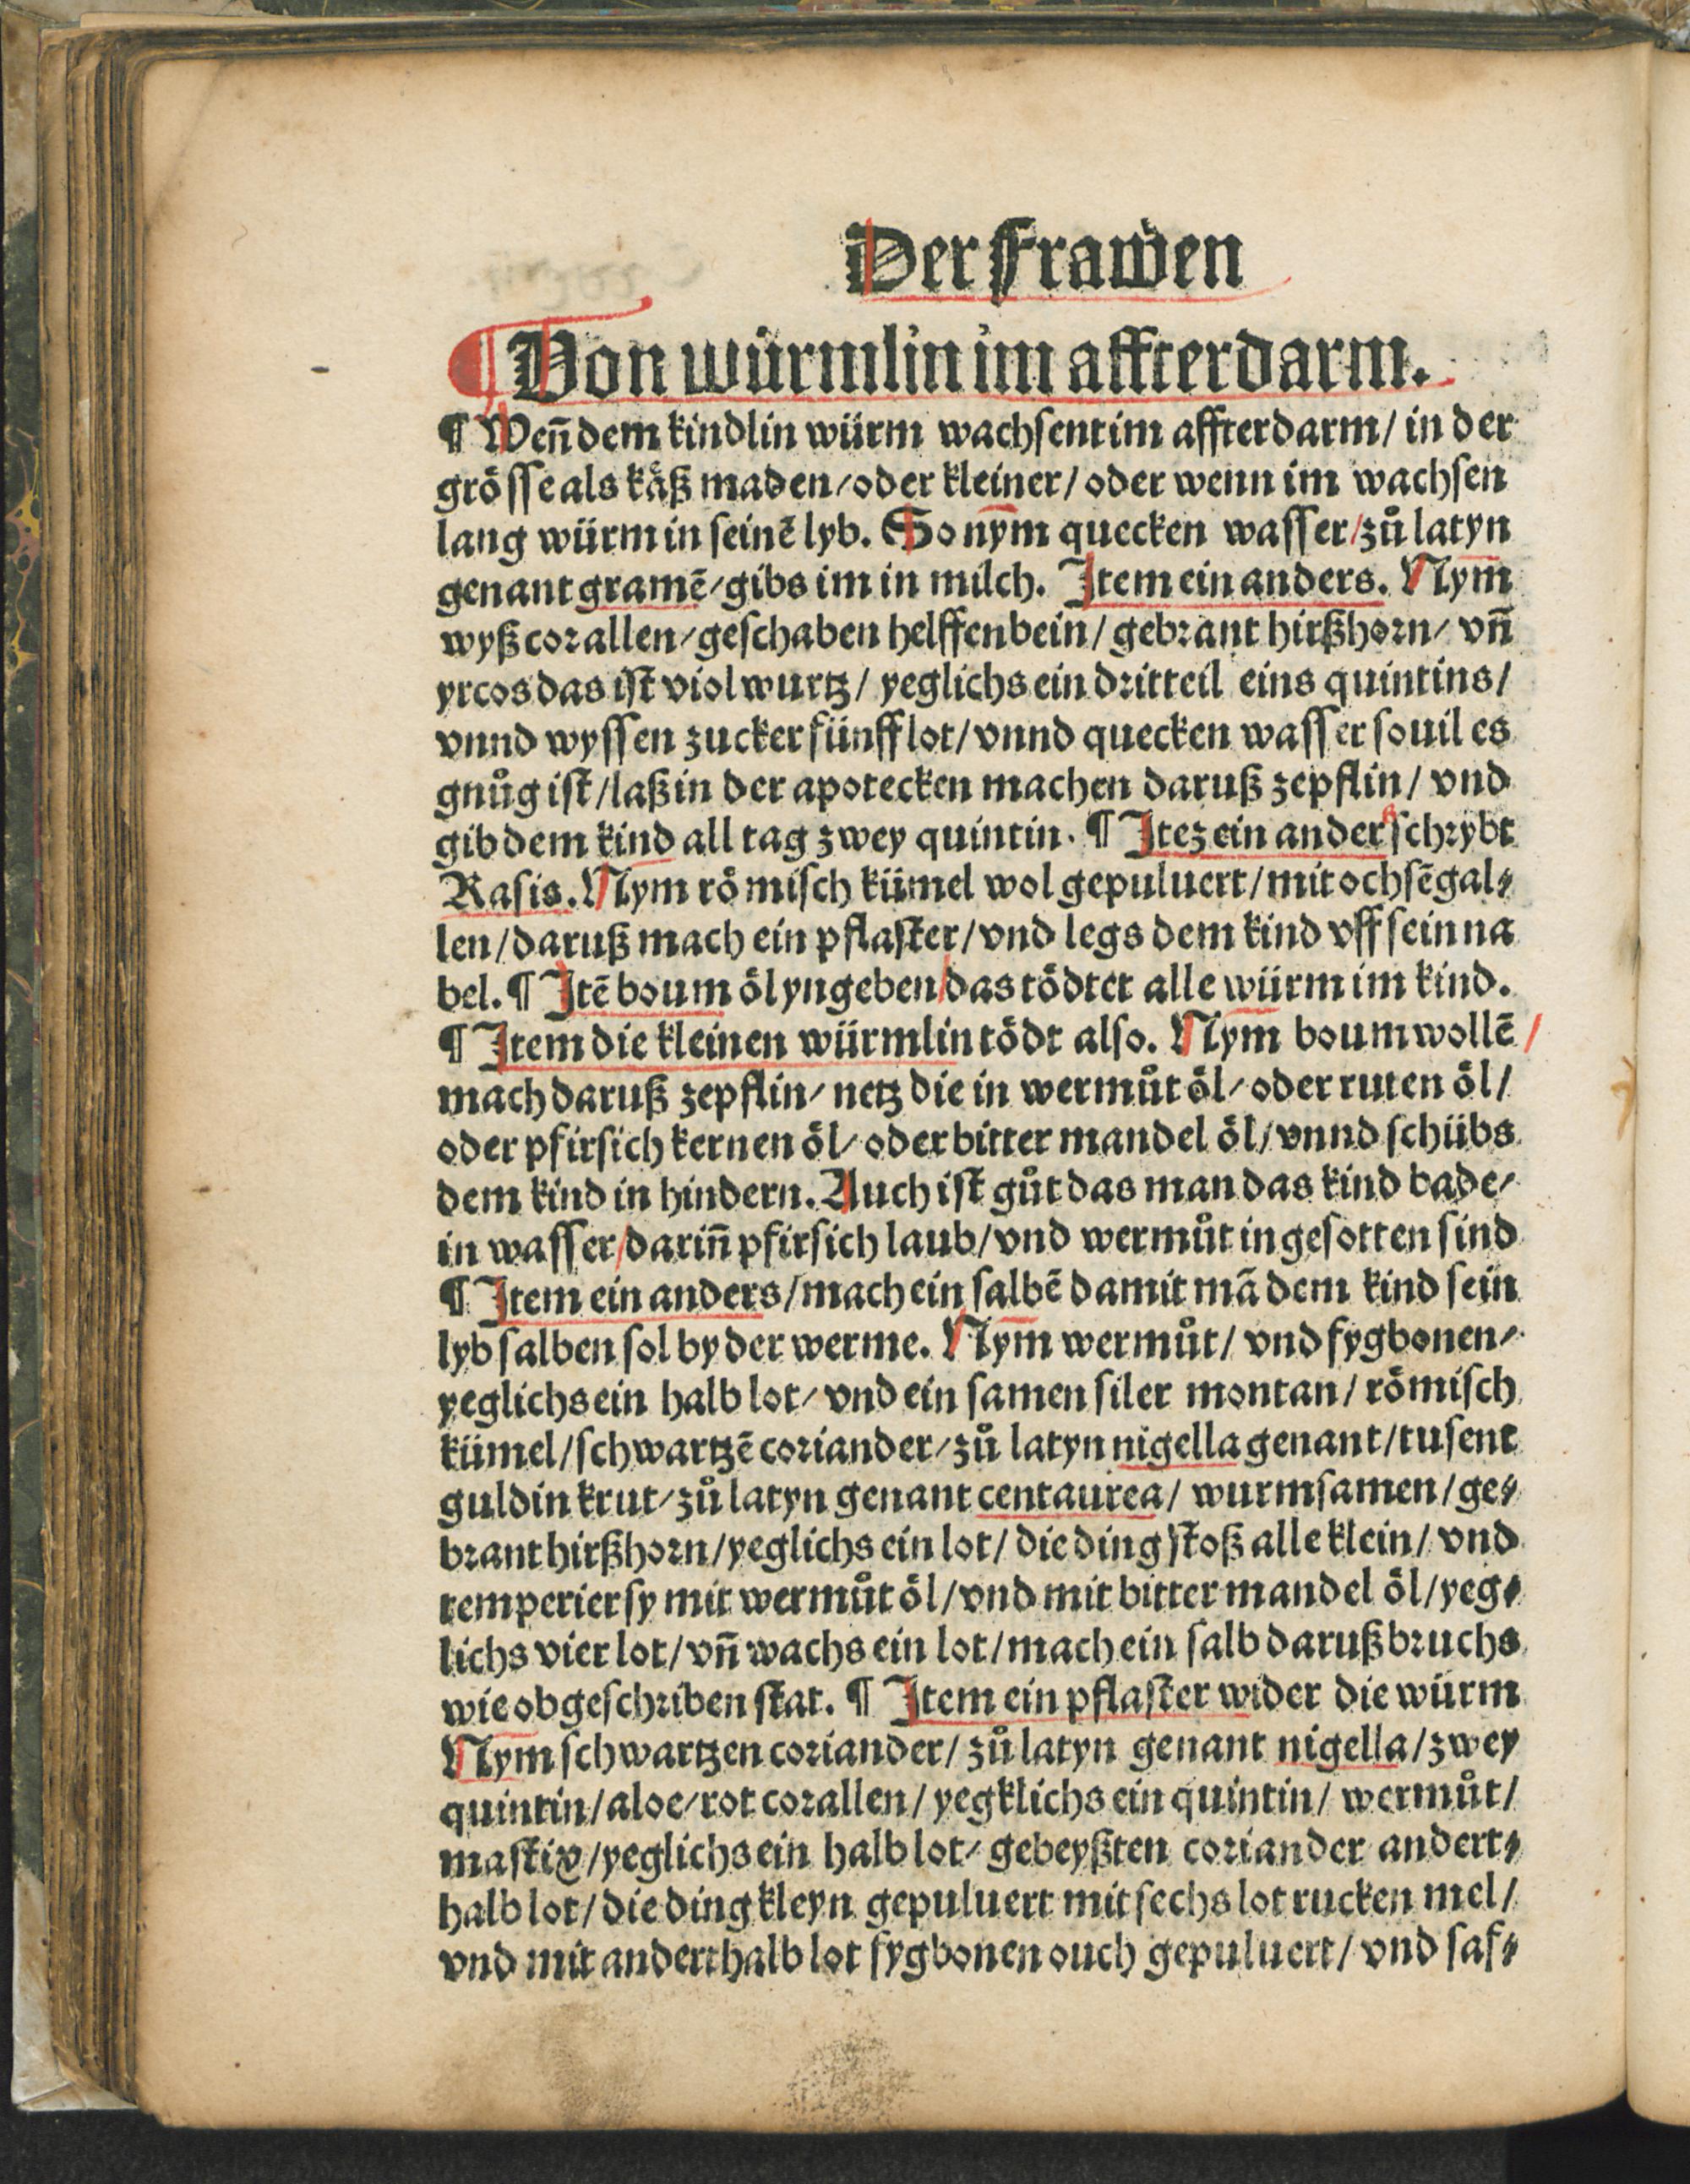 Der Frawen
¶ Von würmlin im affterdarm.
¶ Weñ dem kindlin würm wachsent im affterdarm/ in der
grösse als käß maden/oder kleiner/ oder wenn im wachsen
lang würm in seinē lyb. So nym quecken wasser/zů latyn
genant gramē/gibs im in milch. Item ein anders. Nym
wyß corallen/geschaben helffenbein/ gebrant hirßhorn/ vñ
yrcos das ist violwurtz/ yeglichs ein dritteil eins quintins/
vnnd wyssen zucker fünff lot/vnnd quecken wasser souil es
gnůg ist/laß in der apotecken machen daruß zepflin/ vnd
gib dem kind all tag zwey quintin. ¶ Itez ein anderß schrybt
Rasis. Nym römisch kümel wol gepuluert/mit ochsēgal⸗
len/daruß mach ein pflaster/vnd legs dem kind vff sein na
bel. ¶ Itē boum öl yngeben/das tödtet alle würm im kind.
¶ Item die kleinen würmlin tödt also. Nym boumwollē/
mach daruß zepflin/ netz die in wermůt öl/ oder ruten öl/
oder pfirsich kernen öl/ oder bitter mandel öl/vnnd schübs
dem kind in hindern. Auch ist gůt das man das kind bade/
in wasser/dariñ pfirsich laub/vnd wermůt in gesotten sind
¶ Item ein anders/mach ein salbē damit mā dem kind sein
lyb salben sol by der werme. Nym wermůt/ vnd fygbonen/
yeglichs ein halb lot/ vnd ein samen siler montan/ römisch
kümel/schwartzē coriander/zů latyn nigella genant/tusent
guldin krut/zů latyn genant centaurea/ wurmsamen/ge⸗
brant hirßhorn/yeglichs ein lot/ die ding stoß alle klein/ vnd
temperier sy mit wermůt öl/vnd mit bitter mandel öl/yeg⸗
lichs vier lot/vñ wachs ein lot/mach ein salb daruß bruchs
wie obgeschriben stat. ¶ Item ein pflaster wider die würm
Nym schwartzen coriander/ zů latyn genant nigella/zwey
quintin/aloe/rot corallen/ yegklichs ein quintin/ wermůt/
mastix/yeglichs ein halb lot/ gebeyßten coriander andert⸗
halb lot/die ding kleyn gepuluert mit sechs lot rucken mel/
vnd mit anderthalb lot fygbonen ouch gepuluert/ vnd saf⸗